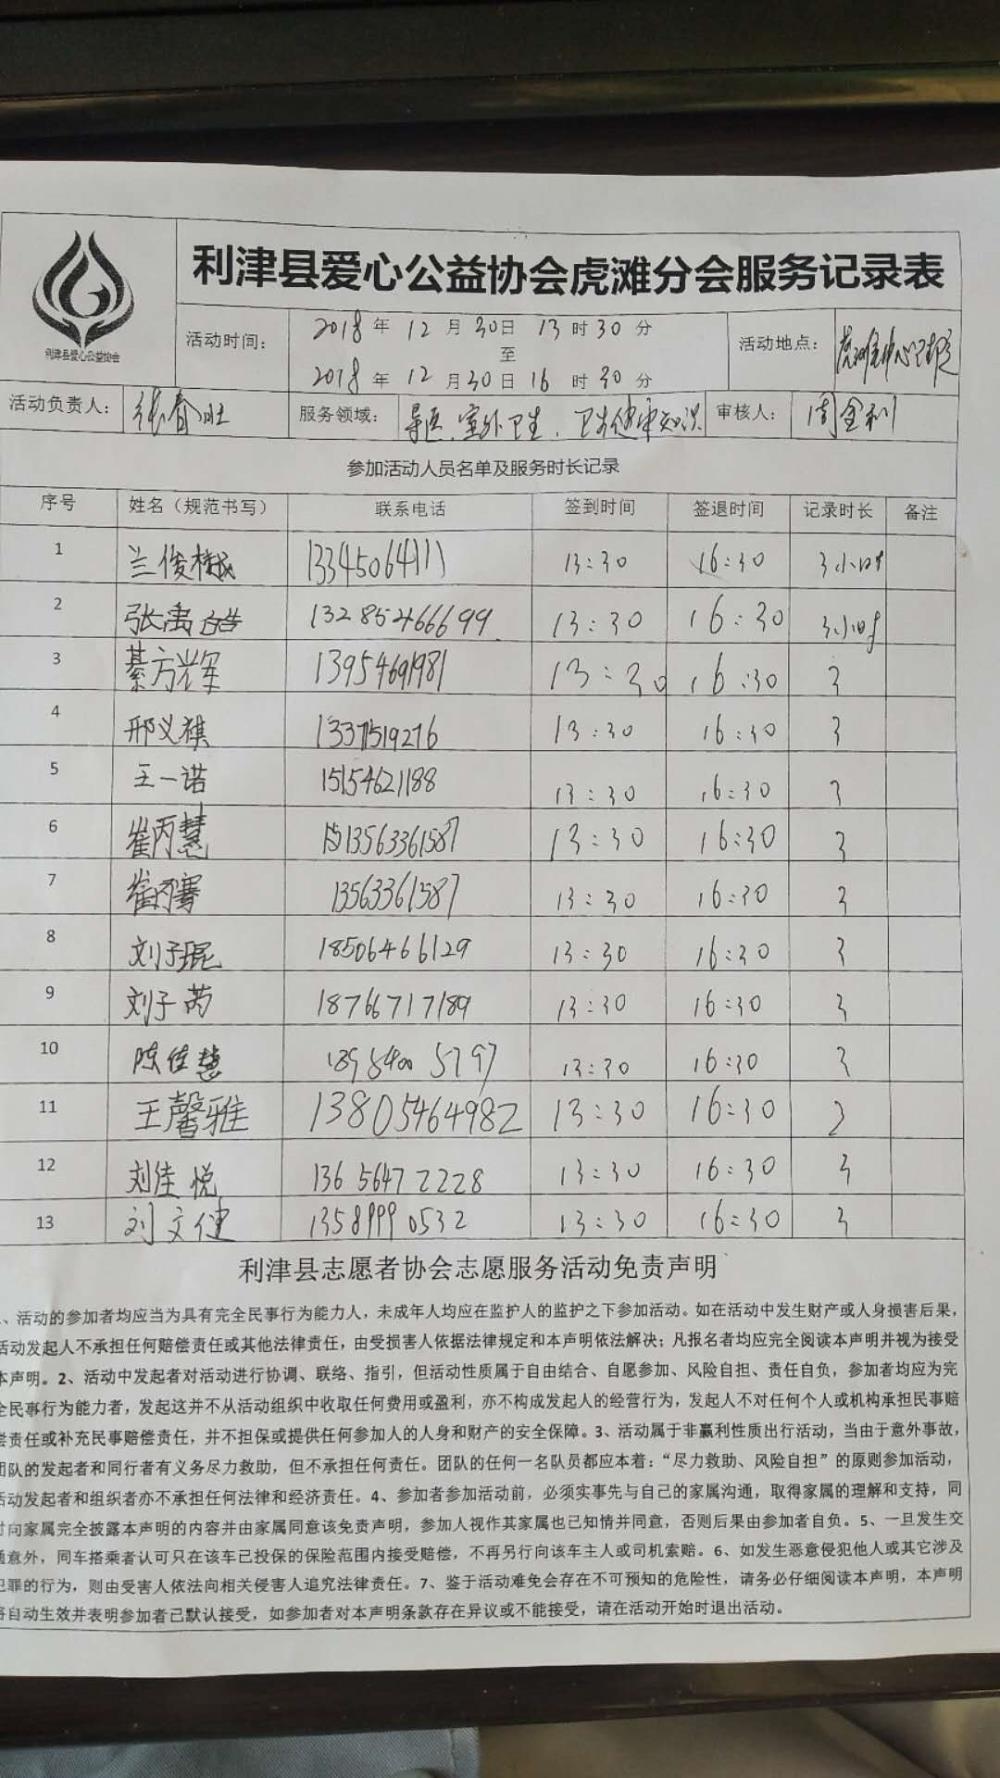 利津县爱心公益协会虎滩分会服务记录表
利津县爱心公益协会
活动时间： 2018年12月30日13时30分
至
2018年12月30日16时30分
活动地点： 虎滩中心卫生院
活动负责人： 张春旺 服务领域： 导医、室外卫生、卫生健康知识 审核人： 周金利
参加活动人员名单及服务时长记录
序号 姓名（规范书写） 联系电话 签到时间 签退时间 记录时长 备注
1 兰俊 13345064111 13:30 16:30 3小时
2 张禹皓 13285466699 13:30 16:30 3小时
3 綦方辉 13954691981 13:30 16:30 3
4 邢义祺 13371519276 13:30 16:30 3
5 王一诺 15154621188 13:30 16:30 3
6 崔丙慧 13563361587 13:30 16:30 3
7 崔丙骞 13563361587 13:30 16:30 3
8 刘子琨 18506466129 13:30 16:30 3
9 刘子芮 18766717189 13:30 16:30 3
10 陈佳慧 13:30 16:30 3
11 王馨雅 13805464982 13:30 16:30 3
12 刘佳悦 13656472228 13:30 16:30 3
13 刘文健 13589990532 13:30 16:30 3
利津县志愿者协会志愿服务活动免责声明
、活动的参加者均应当为具有完全民事行为能力人，未成年人均应在监护人的监护之下参加活动。如在活动中发生财产或人身损害后果，
活动发起人不承担任何赔偿责任或其他法律责任，由受损害人依据法律规定和本声明依法解决；凡报名者均应完全阅读本声明并视为接受
本声明。2、活动中发起者对活动进行协调、联络、指引，但活动性质属于自由结合、自愿参加、风险自担、责任自负，参加者均应为完
全民事行为能力者，发起这并不从活动组织中收取任何费用或盈利，亦不构成发起人的经营行为，发起人不对任何个人或机构承担民事赔
偿责任或补充民事赔偿责任，并不担保或提供任何参加人的人身和财产的安全保障。3、活动属于非赢利性质出行活动，当由于意外事故，
团队的发起者和同行者有义务尽力救助，但不承担任何责任。团队的任何一名队员都应本着：“尽力救助、风险自担”的原则参加活动，
活动发起者和组织者亦不承担任何法律和经济责任。4、参加者参加活动前，必须实事先与自己的家属沟通，取得家属的理解和支持，同
时向家属完全披露本声明的内容并由家属同意该免责声明，参加人视作其家属也已知情并同意，否则后果由参加者自负。5、一旦发生交
通意外，同车搭乘者认可只在该车已投保的保险范围内接受赔偿，不再另行向该车主人或司机索赔。6、如发生恶意侵犯他人或其它涉及
犯罪的行为，则由受害人依法向相关侵害人追究法律责任。7、鉴于活动难免会存在不可预知的危险性，请务必仔细阅读本声明，本声明
将自动生效并表明参加者已默认接受，如参加者对本声明条款存在异议或不能接受，请在活动开始时退出活动。